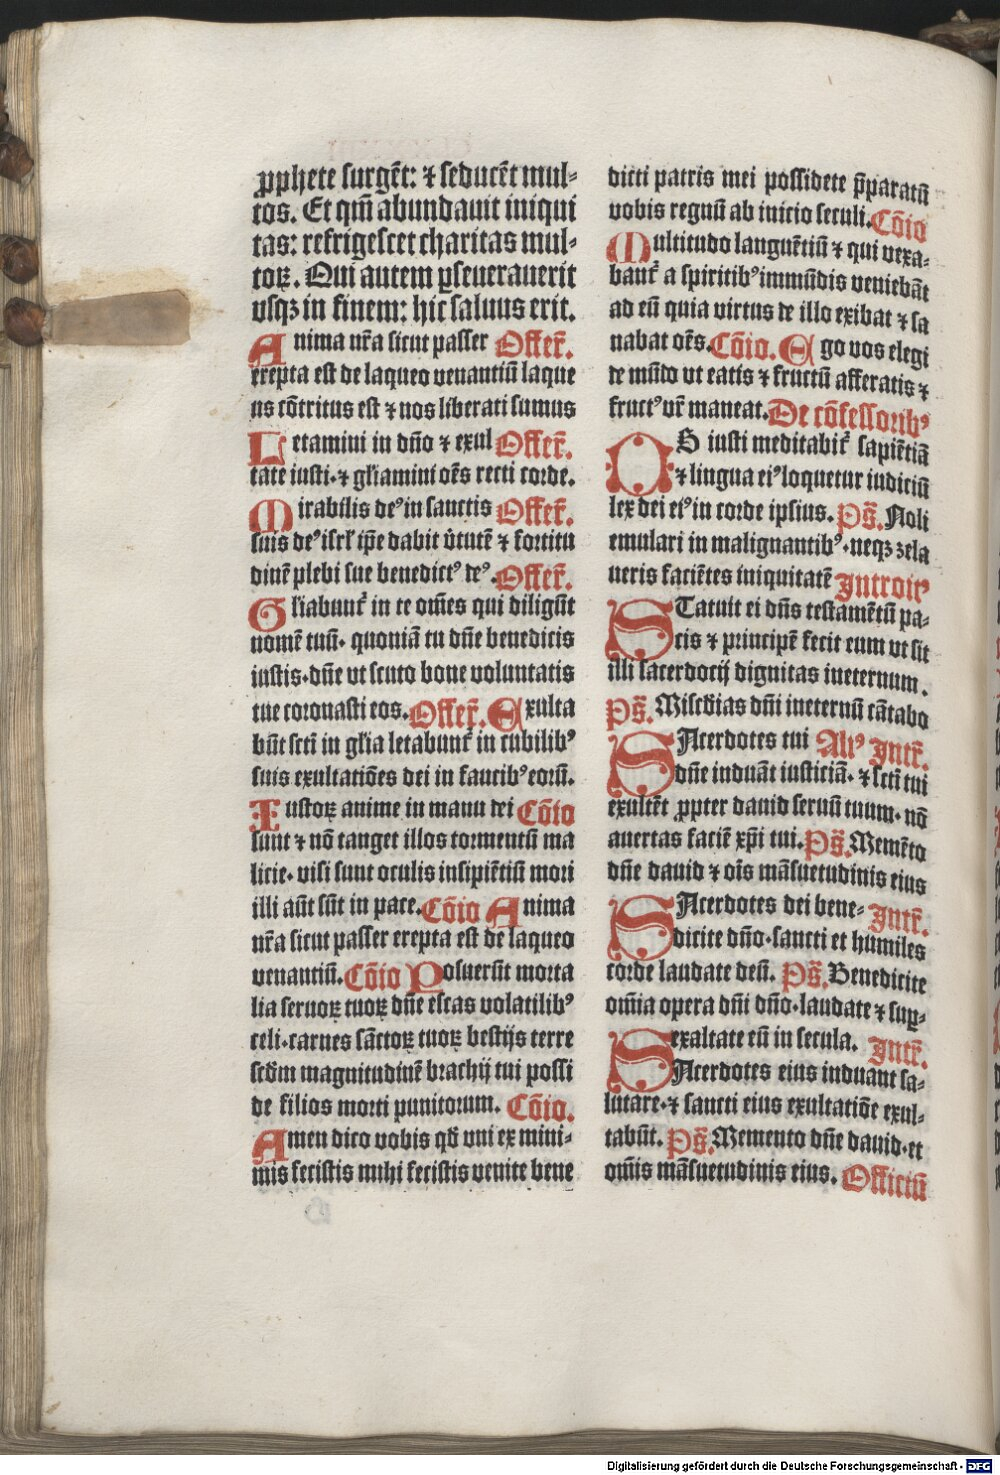 ꝓphete surgēt: ⁊ seducēt mul⸗
tos. Et qm̄ abundauit iniqui
tas: refrigescet charitas mul⸗
toꝝ. Qui autem ꝑseuerauerit
vsqꝫ in finem: hic saluus erit.
Anima nr̄a sicut passer Offer̄.
erepta est de laqueo venantiū laque
us cōtritus est ⁊ nos liberati sumus
Letamini in dño ⁊ exul Offer̄.
tate iusti·⁊ gl̄iamini oēs recti corde.
Mirabilis deꝰ in sanctis Offer̄.
suis deꝰ isrl̄ ip̄e dabit v̓tutē ⁊ fortitu
dinē plebi sue benedictꝰ deꝰ. Offer̄.
Gl̄iabunt᷑ in te om̄es qui diligūt
nomē tuū· quoniā tu dñe benedicis
iustis·dñe vt scuto bone voluntatis
tue coronasti eos. Offer̄. Exulta
būt scti in gl̄ia letabunt᷑ in cubilibꝰ
suis exultatiōes dei in faucibꝰ eorū.
Iustoꝝ anime in manu dei Cōio
sunt ⁊ nō tanget illos tormentū ma
licie· visi sunt oculis insipiētiū mori
illi aūt sūt in pace. Cōio Anima
nr̄a sicut passer erepta est de laqueo
venantiū. Cōio Posuerūt morta
lia seruoꝝ tuoꝝ dñe escas volatilibꝰ
celi·carnes sāctoꝝ tuoꝝ bestijs terre
scd̄m magnitudinē brachij tui possi
de filios morti punitorum. Cōio.
Amen dico vobis qd̄ vni ex mini⸗
mis fecistis mihi fecistis venite bene
dicti patris mei possidete p̄paratū
vobis regnū ab inicio seculi. Cōio
Multitudo languētiū ⁊ qui vexa⸗
bant᷑ a spiritibꝰ immūdis veniebāt
ad eū quia virtus de illo exibat ⁊ sa
nabat oēs. Cōio. Ego vos elegi
de mūdo vt eatis ⁊ fructū afferatis ⁊
fructꝰ vr̄ maneat. De cōfessoribꝰ
OS iusti meditabit᷑ sapiētiā
⁊ lingua eiꝰ loquetur iudiciū
lex dei eiꝰ in corde ipsius. Ps̄. Noli
emulari in malignantibꝰ·neqꝫ zela
ueris faciētes iniquitatē Introitꝰ
STatuit ei dn̄s testamētū pa⸗
cis ⁊ principē fecit eum vt sit
illi sacerdotij dignitas ineternum.
Ps̄. Misc̄dias dn̄i ineternū cātabo
SAcerdotes tui Aliꝰ Intr̄.
dñe induāt iusticiā· ⁊ scti tui
exultēt ꝓpter dauid seruū tuum· nō
auertas faciē xp̄i tui. Ps̄. Memēto
dñe dauid ⁊ oīs māsuetudinis eius
SAcerdotes dei bene⸗ Intr̄.
dicite dño·sancti et humiles
corde laudate deū. Ps̄. Benedicite
om̄ia opera dn̄i dño·laudate ⁊ suꝑ⸗
exaltate eū in secula. Intr̄.
SAcerdotes eius induant sa⸗
lutare·⁊ sancti eius exultatiōe exul⸗
tabūt. Ps̄. Memento dñe dauid·et
om̄is māsuetudinis eius. Officiū
Digitalisierung gefördert durch die Deutsche Forschungsgemeinschaft - DFG